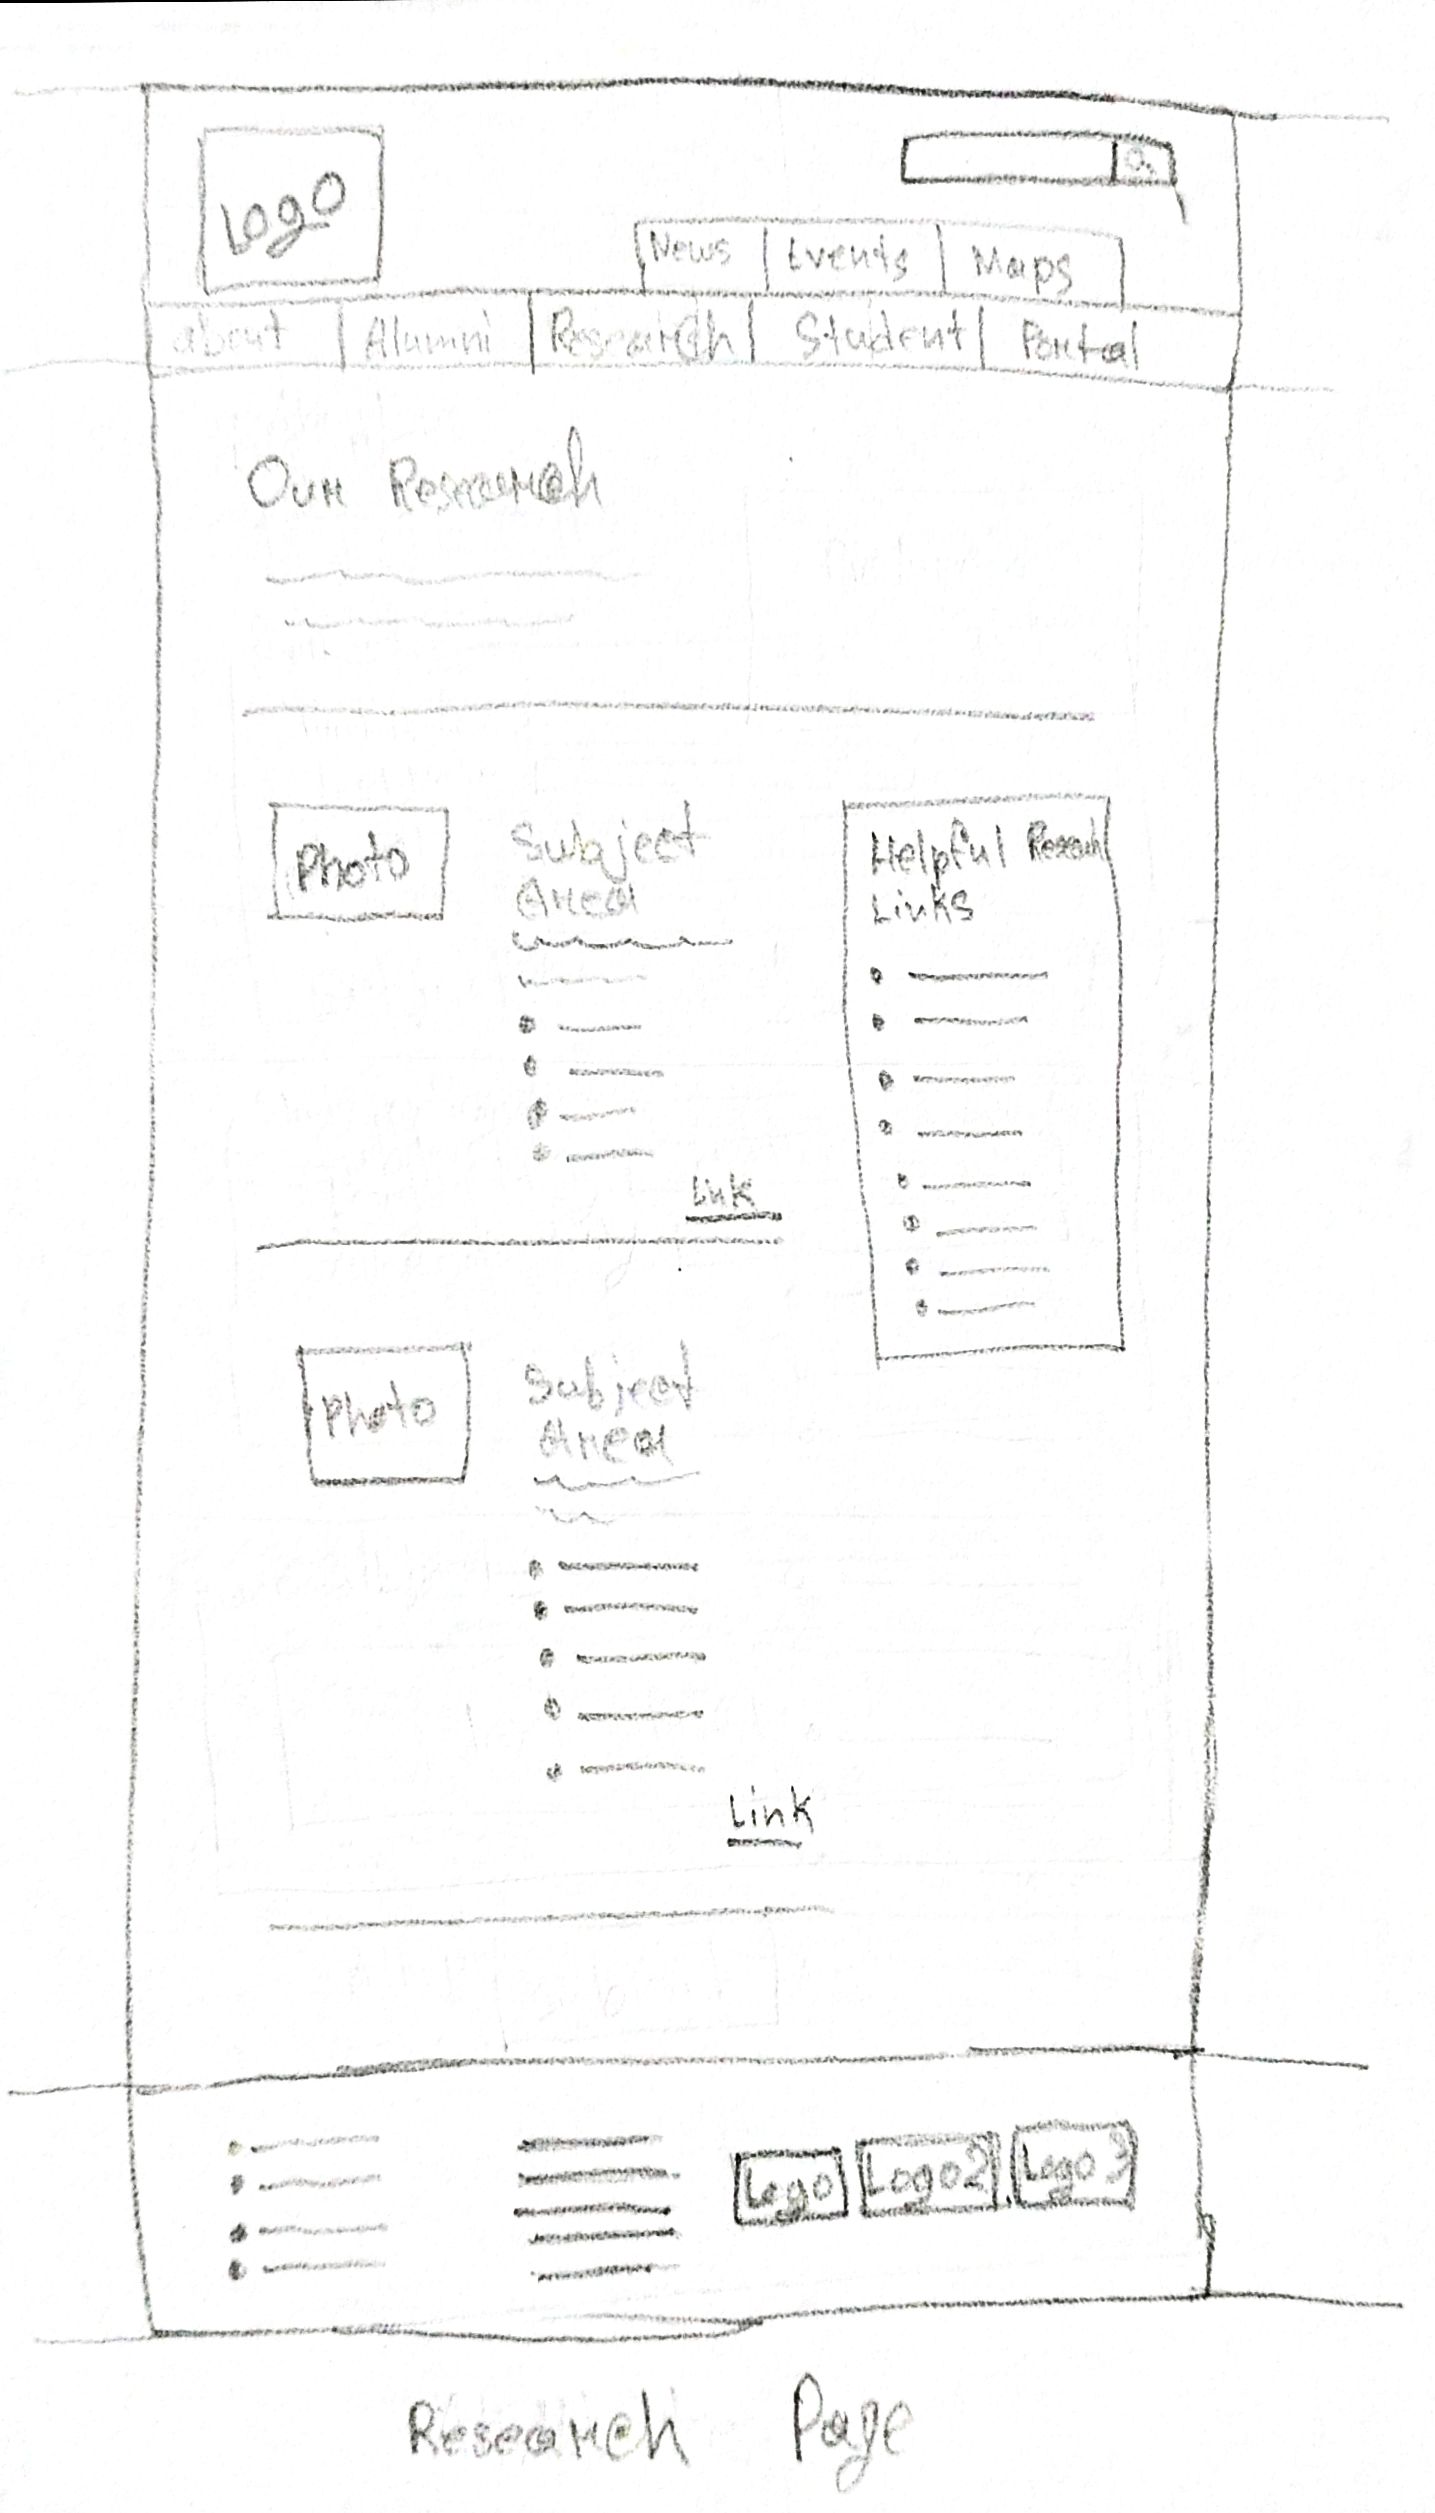 Logo
News Events Maps
about Alumni Research Student Portal
Our Research
Photo
Subject
Area
Link
Helpful Reseach
Links
Photo
Subject
Area
Link
Logo Logo2 Logo 3
Research Page